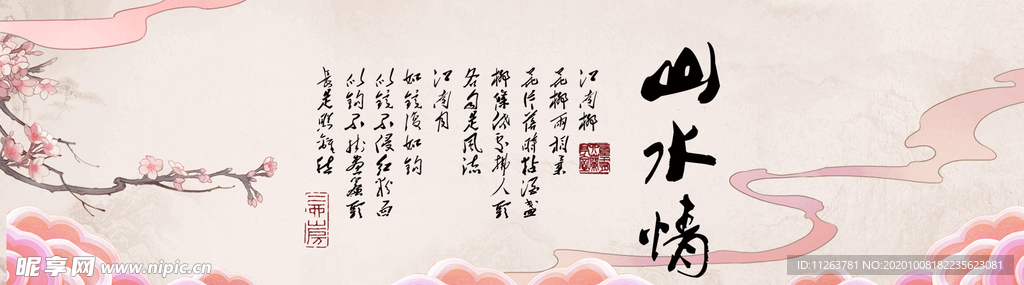 山水情
江南柳
花柳兩相柔
花片落時粘酒盞
柳條低處拂人頭
各自是風流
江南月
如鏡復如鉤
似鏡不侵紅粉面
似鉤不挂畫簾頭
長是照離愁
昵享网 www.nipic.cn
ID:11263781 NO:20201008182235623081